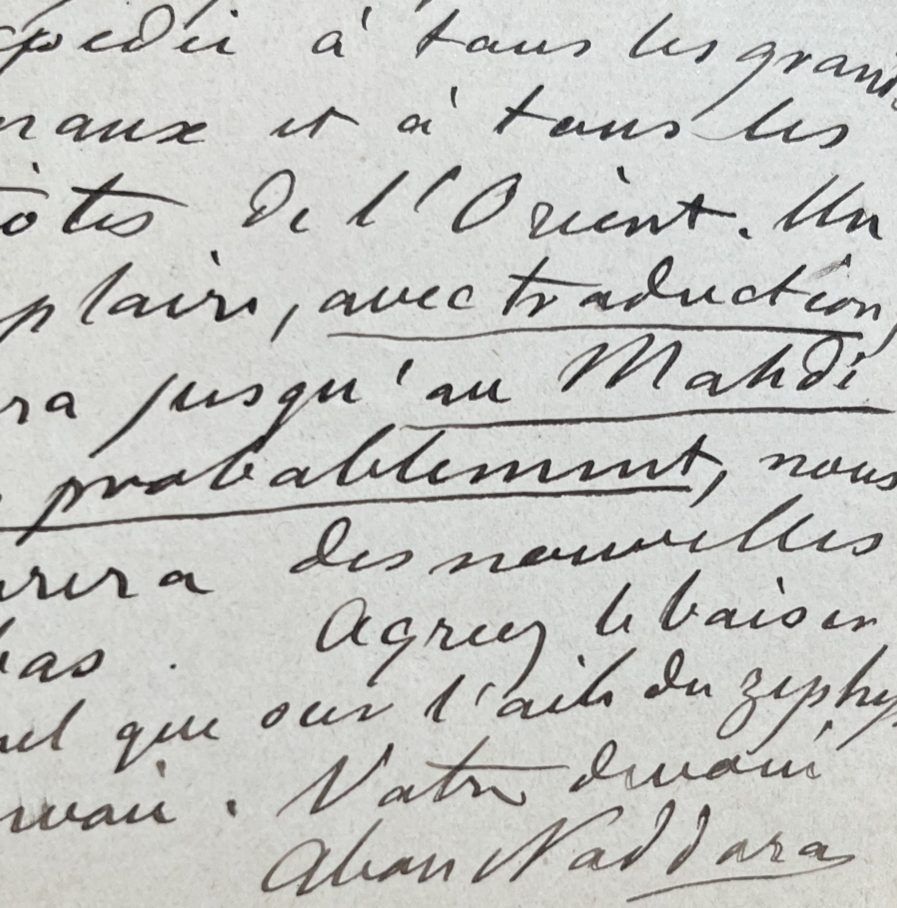 pedié à tous les grand
naux et à tous les
ôtes de l'Orient. Un
plaire, avec traduction,
ra jusqu'au Mahdi
probablement, nous
rera des nouvelles
bas. Agreez le baiser
el que sur l'aile du zephy
voie. Votre devoué
Abou Naddara